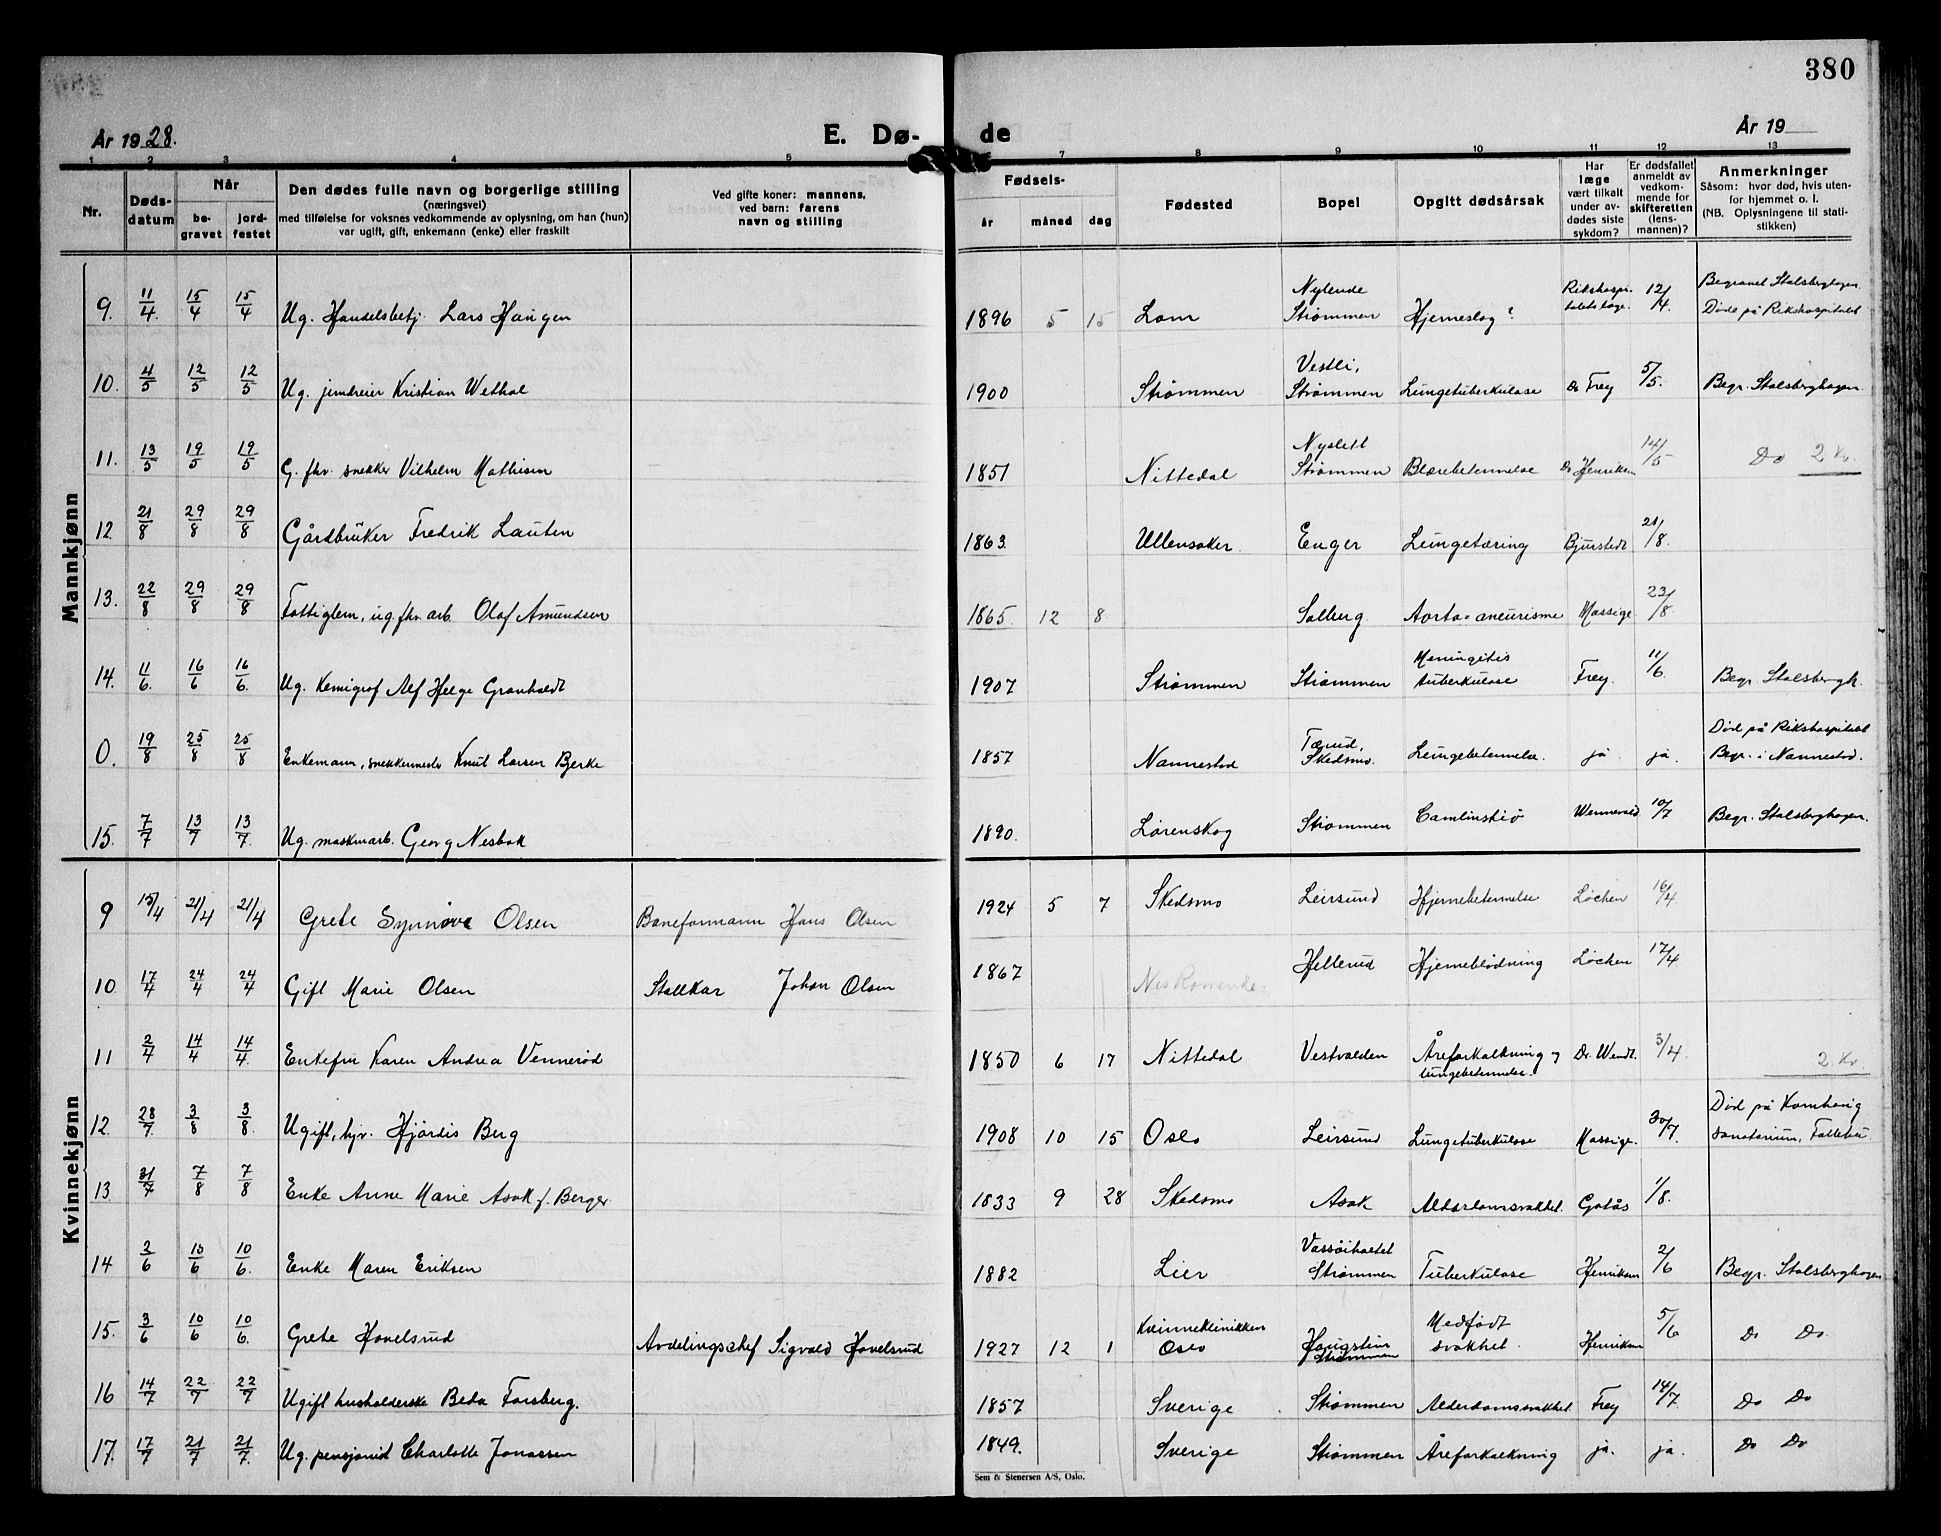 380
År 1928. E. Dø- de År 19
1 2 3 4 5 7 8 9 10 11 12 13
Nr. Døds-datum Når be-gravet jord-festet Den dødes fulle navn og borgerlige stilling (næringsvei) med tilføielse for voksnes vedkommende av oplysning, om han (hun) var ugift, gift, enkemann (enke) eller fraskilt Ved gifte koner: mannens, ved barn: farens navn og stilling Fødsels- år måned dag Fødested Bopel Opgitt dødsårsak Har læge vært tilkalt under av-dødes siste sykdom? Er dødsfallet anmeldt av vedkom-mende for skifteretten (lens-mannen)? Anmerkninger Såsom: hvor død, hvis uten-for hjemmet o. l. (NB. Oplysningene til stati-stikken)
Mannkjønn
9. 11/4. 15/4 15/4 Ug. Handelsbetj. Lars Haugen 1896 5 15 Lom Nylende Strømmen Hjerneslag? 12/4. Begravet Stalsberghagen. Døde på Rikshospitalet
10. 4/5 12/5 12/5 Ug. jerndreier Kristian Wethal 1900 Strømmen Vestli, Strømmen Lungetuberkulose Dr Frey 5/5. Begr. Stalsberghagen.
11. 13/5 19/5 19/5 G. fhv. snekker Vilhelm Mathisen 1851 Nittedal Nyslett Strømmen Blærebetennelse Dr Henriksen 14/5 Do 2 Kr.
12. 21/8 29/8 29/8 Gårdbruker Fredrik Lauten 1863. Ullensaker. Enger Lungetæring Bjurstedt 21/8.
13. 22/8 29/8 29/8 Fattiglem, ug. fhv. arb. Olaf Amundsen 1865. 12 8 Solberg Aorta-aneurisme Massige 23/8
14. 11/6. 16/6 16/6. Ug. Kemigraf Alf Helge Granholdt 1907 Strømmen Strømmen Meningitis tuberkulose Frey. 11/6. Begr. Stalsbergh.
0. 19/8 25/8 25/8 Enkemann, snekkermester Knut Larsen Bjerke 1857 Nannestad Tærud, Skedsmo. Lungebetennelse. ja ja. Død på Rikshospitalet Begr. i Nannestad.
15. 7/7 13/7 13/7. Ug. maskinarb. Georg Nesbak 1890. Lørenskog Strømmen Wennevold 10/7 Begr. Stalsberghagen.
Kvinnekjønn
9 15/4 21/4 21/4 Grete Synnøve Olsen Baneformann Hans Olsen 1924 5 7 Skedsmo Leirsund Hjernebetennelse Løchen 16/4
10 17/4 24/4 24/4 Gift Marie Olsen Stallkar Johan Olsen 1867 Nes Romerike. Hellerud Hjerneblødning Løchen 17/4
11 2/4 14/4 14/4. Enkefru Karen Andrea Vennerød 1850 6 17 Nittedal Vestvolden Åreforkalkning og lungebetennelse. Dr. Wendt. 3/4. 2. Kr.
12. 28/7. 3/8 3/8. Ugift, hjv. Hjørdis Berg 1908 10 15 Oslo Leirsund Lungetuberkulose Massige. 30/7. Død på Kornhaug sanatorium, Follebu
13. 31/7 7/8 7/8 Enke Anne Marie Asak f. Berger. 1833 9 28 Skedsmo Asak Alderdomssvakhet. Gotås 1/8.
14 2/6 10/6 10/6. Enke Maren Eriksen 1882 Lier Strømmen Tuberkulose Henriksen 2/6 Begr. Stalsberghagen
15. 3/6 10/6 10/6. Grete Hovelsrud Avdelingschef Sigvald Hovelsrud 1927 12 1 Kvinneklinikken Oslo Strømmen Medfødt svakhet. Henriksen 5/6 Do Do.
16 14/7 22/7 22/7 Ugift husholderske Beda Forsberg. 1857 Sverige Strømmen Alderdomssvakhet. Frey 14/7. Do Do
17. 17/7 21/7 21/7. Ug. pensjonist Charlotte Jonassen 1849. Sverige Strømmen Åreforkalkning ja. ja. Do Do
Sem & Stenersen A/S, Oslo.